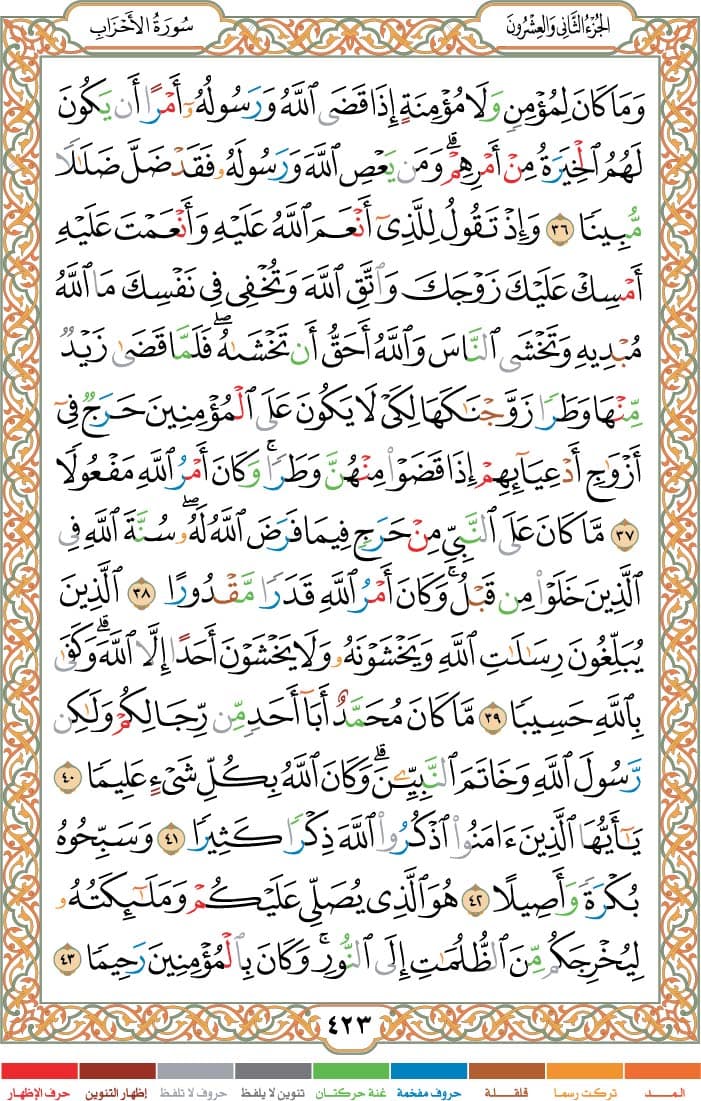 الجُزءُ الثَّانِي وَالعِشْرُونَ
سُورَةُ الأَحْزَابِ
وَمَا كَانَ لِمُؤْمِنٍ وَلَا مُؤْمِنَةٍ إِذَا قَضَى ٱللَّهُ وَرَسُولُهُۥٓ أَمْرًا أَن يَكُونَ
لَهُمُ ٱلْخِيَرَةُ مِنْ أَمْرِهِمْ ۗ وَمَن يَعْصِ ٱللَّهَ وَرَسُولَهُۥ فَقَدْ ضَلَّ ضَلَٰلًا
مُّبِينًا ٣٦ وَإِذْ تَقُولُ لِلَّذِىٓ أَنْعَمَ ٱللَّهُ عَلَيْهِ وَأَنْعَمْتَ عَلَيْهِ
أَمْسِكْ عَلَيْكَ زَوْجَكَ وَٱتَّقِ ٱللَّهَ وَتُخْفِى فِى نَفْسِكَ مَا ٱللَّهُ
مُبْدِيهِ وَتَخْشَى ٱلنَّاسَ وَٱللَّهُ أَحَقُّ أَن تَخْشَىٰهُ ۖ فَلَمَّا قَضَىٰ زَيْدٌ
مِّنْهَا وَطَرًا زَوَّجْنَٰكَهَا لِكَىْ لَا يَكُونَ عَلَى ٱلْمُؤْمِنِينَ حَرَجٌ فِىٓ
أَزْوَٰجِ أَدْعِيَآئِهِمْ إِذَا قَضَوْا۟ مِنْهُنَّ وَطَرًا ۚ وَكَانَ أَمْرُ ٱللَّهِ مَفْعُولًا
٣٧ مَّا كَانَ عَلَى ٱلنَّبِىِّ مِنْ حَرَجٍ فِيمَا فَرَضَ ٱللَّهُ لَهُۥ ۖ سُنَّةَ ٱللَّهِ فِى
ٱلَّذِينَ خَلَوْا۟ مِن قَبْلُ ۚ وَكَانَ أَمْرُ ٱللَّهِ قَدَرًا مَّقْدُورًا ٣٨ ٱلَّذِينَ
يُبَلِّغُونَ رِسَٰلَٰتِ ٱللَّهِ وَيَخْشَوْنَهُۥ وَلَا يَخْشَوْنَ أَحَدًا إِلَّا ٱللَّهَ ۗ وَكَفَىٰ
بِٱللَّهِ حَسِيبًا ٣٩ مَّا كَانَ مُحَمَّدٌ أَبَآ أَحَدٍ مِّن رِّجَالِكُمْ وَلَٰكِن
رَّسُولَ ٱللَّهِ وَخَاتَمَ ٱلنَّبِيِّۦنَ ۗ وَكَانَ ٱللَّهُ بِكُلِّ شَىْءٍ عَلِيمًا ٤٠
يَٰٓأَيُّهَا ٱلَّذِينَ ءَامَنُوا۟ ٱذْكُرُوا۟ ٱللَّهَ ذِكْرًا كَثِيرًا ٤١ وَسَبِّحُوهُ
بُكْرَةً وَأَصِيلًا ٤٢ هُوَ ٱلَّذِى يُصَلِّى عَلَيْكُمْ وَمَلَٰٓئِكَتُهُۥ
لِيُخْرِجَكُم مِّنَ ٱلظُّلُمَٰتِ إِلَى ٱلنُّورِ ۚ وَكَانَ بِٱلْمُؤْمِنِينَ رَحِيمًا ٤٣
٤٢٣
المـــد تركت رسما قلقـلة حروف مفخمة غنة حركتان تنوين لا يلفظ حروف لا تلفظ إظهار التنوين حرف الإظهار